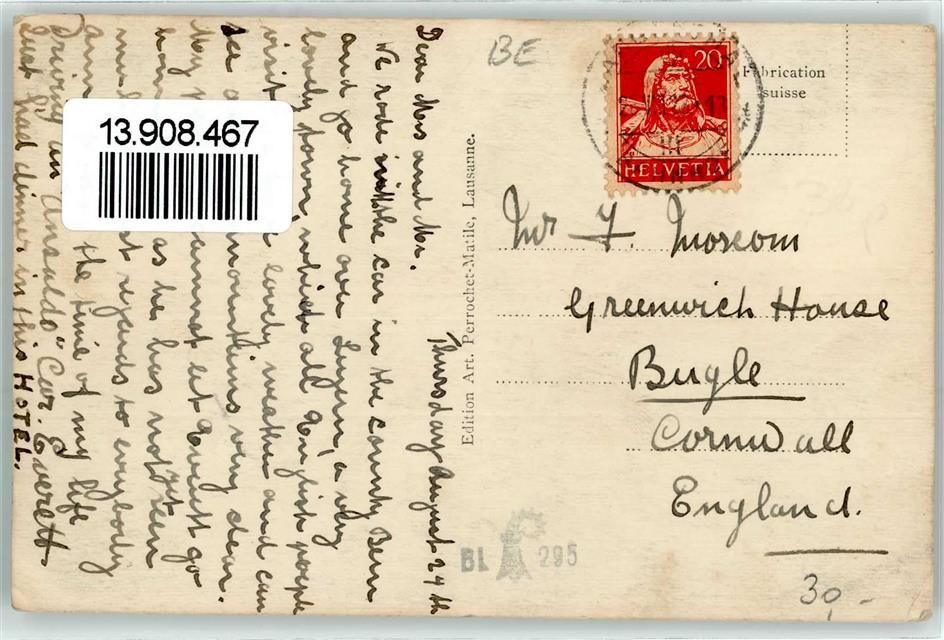 13.908.467
BE
20
HELVETIA
Fabrication
suisse
Mr F. Moscom
Greenwich House
Bugle
Cornwall
England.
30,-
BL 295
Edition Art. Perrochet-Matile, Lausanne.
Thursday August 29th
Dear Mrs and Mr.
We rode in the car in the county Bern
and go home over Luzern, a very
lovely town, which all English people
visit lovely weather and can
see mountains very clear.
cannot go
as he has not yet been
regards to everybody
the time of my life
Driving an "Ansaldo" Car. Everett
Just had dinner in this HOTEL.